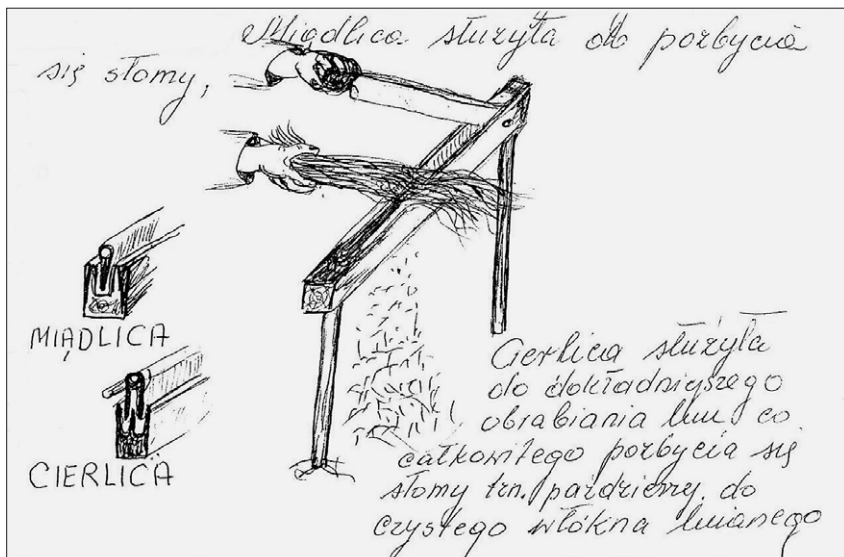 Miądlica służyła do pozbycia
się słomy,
MIĄDLICA
CIERLICA
Cierlica służyła
do dokładniejszego
obrabiania lnu co
całkowitego pozbycia się
słomy tzn. paździerzy, do
czystego włókna lnianego